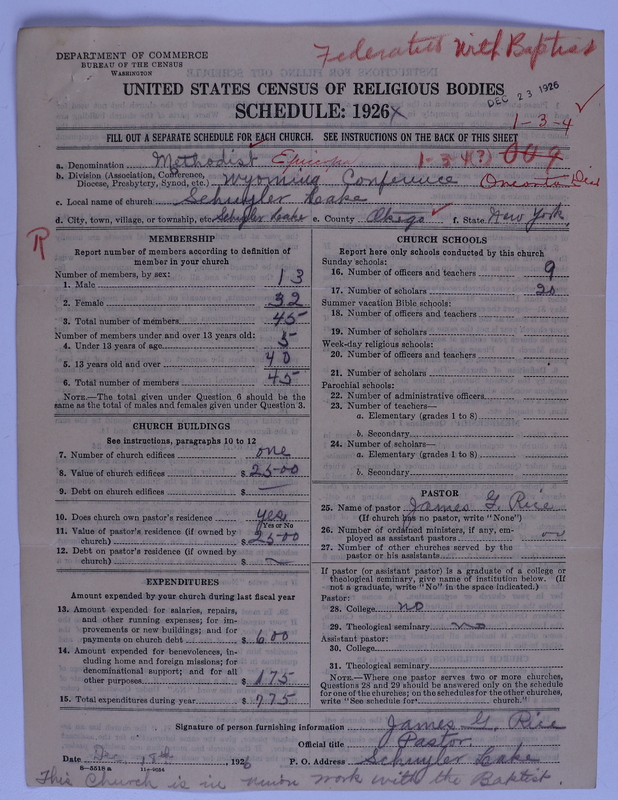 Federated with Baptist
DEPARTMENT OF COMMERCE
BUREAU OF THE CENSUS
WASHINGTON
UNITED STATES CENSUS OF RELIGIOUS BODIES
DEC 23 1926
SCHEDULE: 1926
1-3-4
FILL OUT A SEPARATE SCHEDULE FOR EACH CHURCH. SEE INSTRUCTIONS ON THE BACK OF THIS SHEET
a. Denomination Methodist Episcopal 1-3-4(?) 009
b. Division (Association, Conference, Diocese, Presbytery, Synod, etc.) Wyoming Conference Oneonta Dist
c. Local name of church Schuyler Lake
d. City, town, village, or township, etc. Schuyler Lake e. County Otsego f. State New York
R
MEMBERSHIP
Report number of members according to definition of
member in your church
Number of members, by sex:
1. Male 13
2. Female 32
3. Total number of members 45
Number of members under and over 13 years old:
4. Under 13 years of age 5
5. 13 years old and over 40
6. Total number of members 45
NOTE.—The total given under Question 6 should be the
same as the total of males and females given under Question 3.
CHURCH BUILDINGS
See instructions, paragraphs 10 to 12
7. Number of church edifices one
8. Value of church edifices $2500
9. Debt on church edifices $ —
10. Does church own pastor's residence yes
(Yes or No)
11. Value of pastor's residence (if owned by
church) $2500
12. Debt on pastor's residence (if owned by
church) $ —
EXPENDITURES
Amount expended by your church during last fiscal year
13. Amount expended for salaries, repairs,
and other running expenses; for im-
provements or new buildings; and for
payments on church debt $600
14. Amount expended for benevolences, in-
cluding home and foreign missions; for
denominational support; and for all
other purposes $175
15. Total expenditures during year $775
CHURCH SCHOOLS
Report here only schools conducted by this church
Sunday schools:
16. Number of officers and teachers 9
17. Number of scholars 20
Summer vacation Bible schools:
18. Number of officers and teachers
19. Number of scholars
Week-day religious schools:
20. Number of officers and teachers
21. Number of scholars
Parochial schools:
22. Number of administrative officers
23. Number of teachers—
a. Elementary (grades 1 to 8)
b. Secondary
24. Number of scholars—
a. Elementary (grades 1 to 8)
b. Secondary
PASTOR
25. Name of pastor James G. Rice
(If church has no pastor, write "None")
26. Number of ordained ministers, if any, em-
ployed as assistant pastors
27. Number of other churches served by the
pastor or his assistants
If pastor (or assistant pastor) is a graduate of a college or
theological seminary, give name of institution below. (If
not a graduate, write "No" in the space indicated.)
Pastor:
28. College no
29. Theological seminary no
Assistant pastor:
30. College
31. Theological seminary
NOTE.—Where one pastor serves two or more churches,
Questions 28 and 29 should be answered only on the schedule
for one of the churches; on the schedules for the other churches,
write "See schedule for church."
Signature of person furnishing information James G. Rice
Official title Pastor
Date Dec 18th, 1926 P. O. Address Schuyler Lake
6—5518a 11—9054
This Church is in union work with the Baptist.